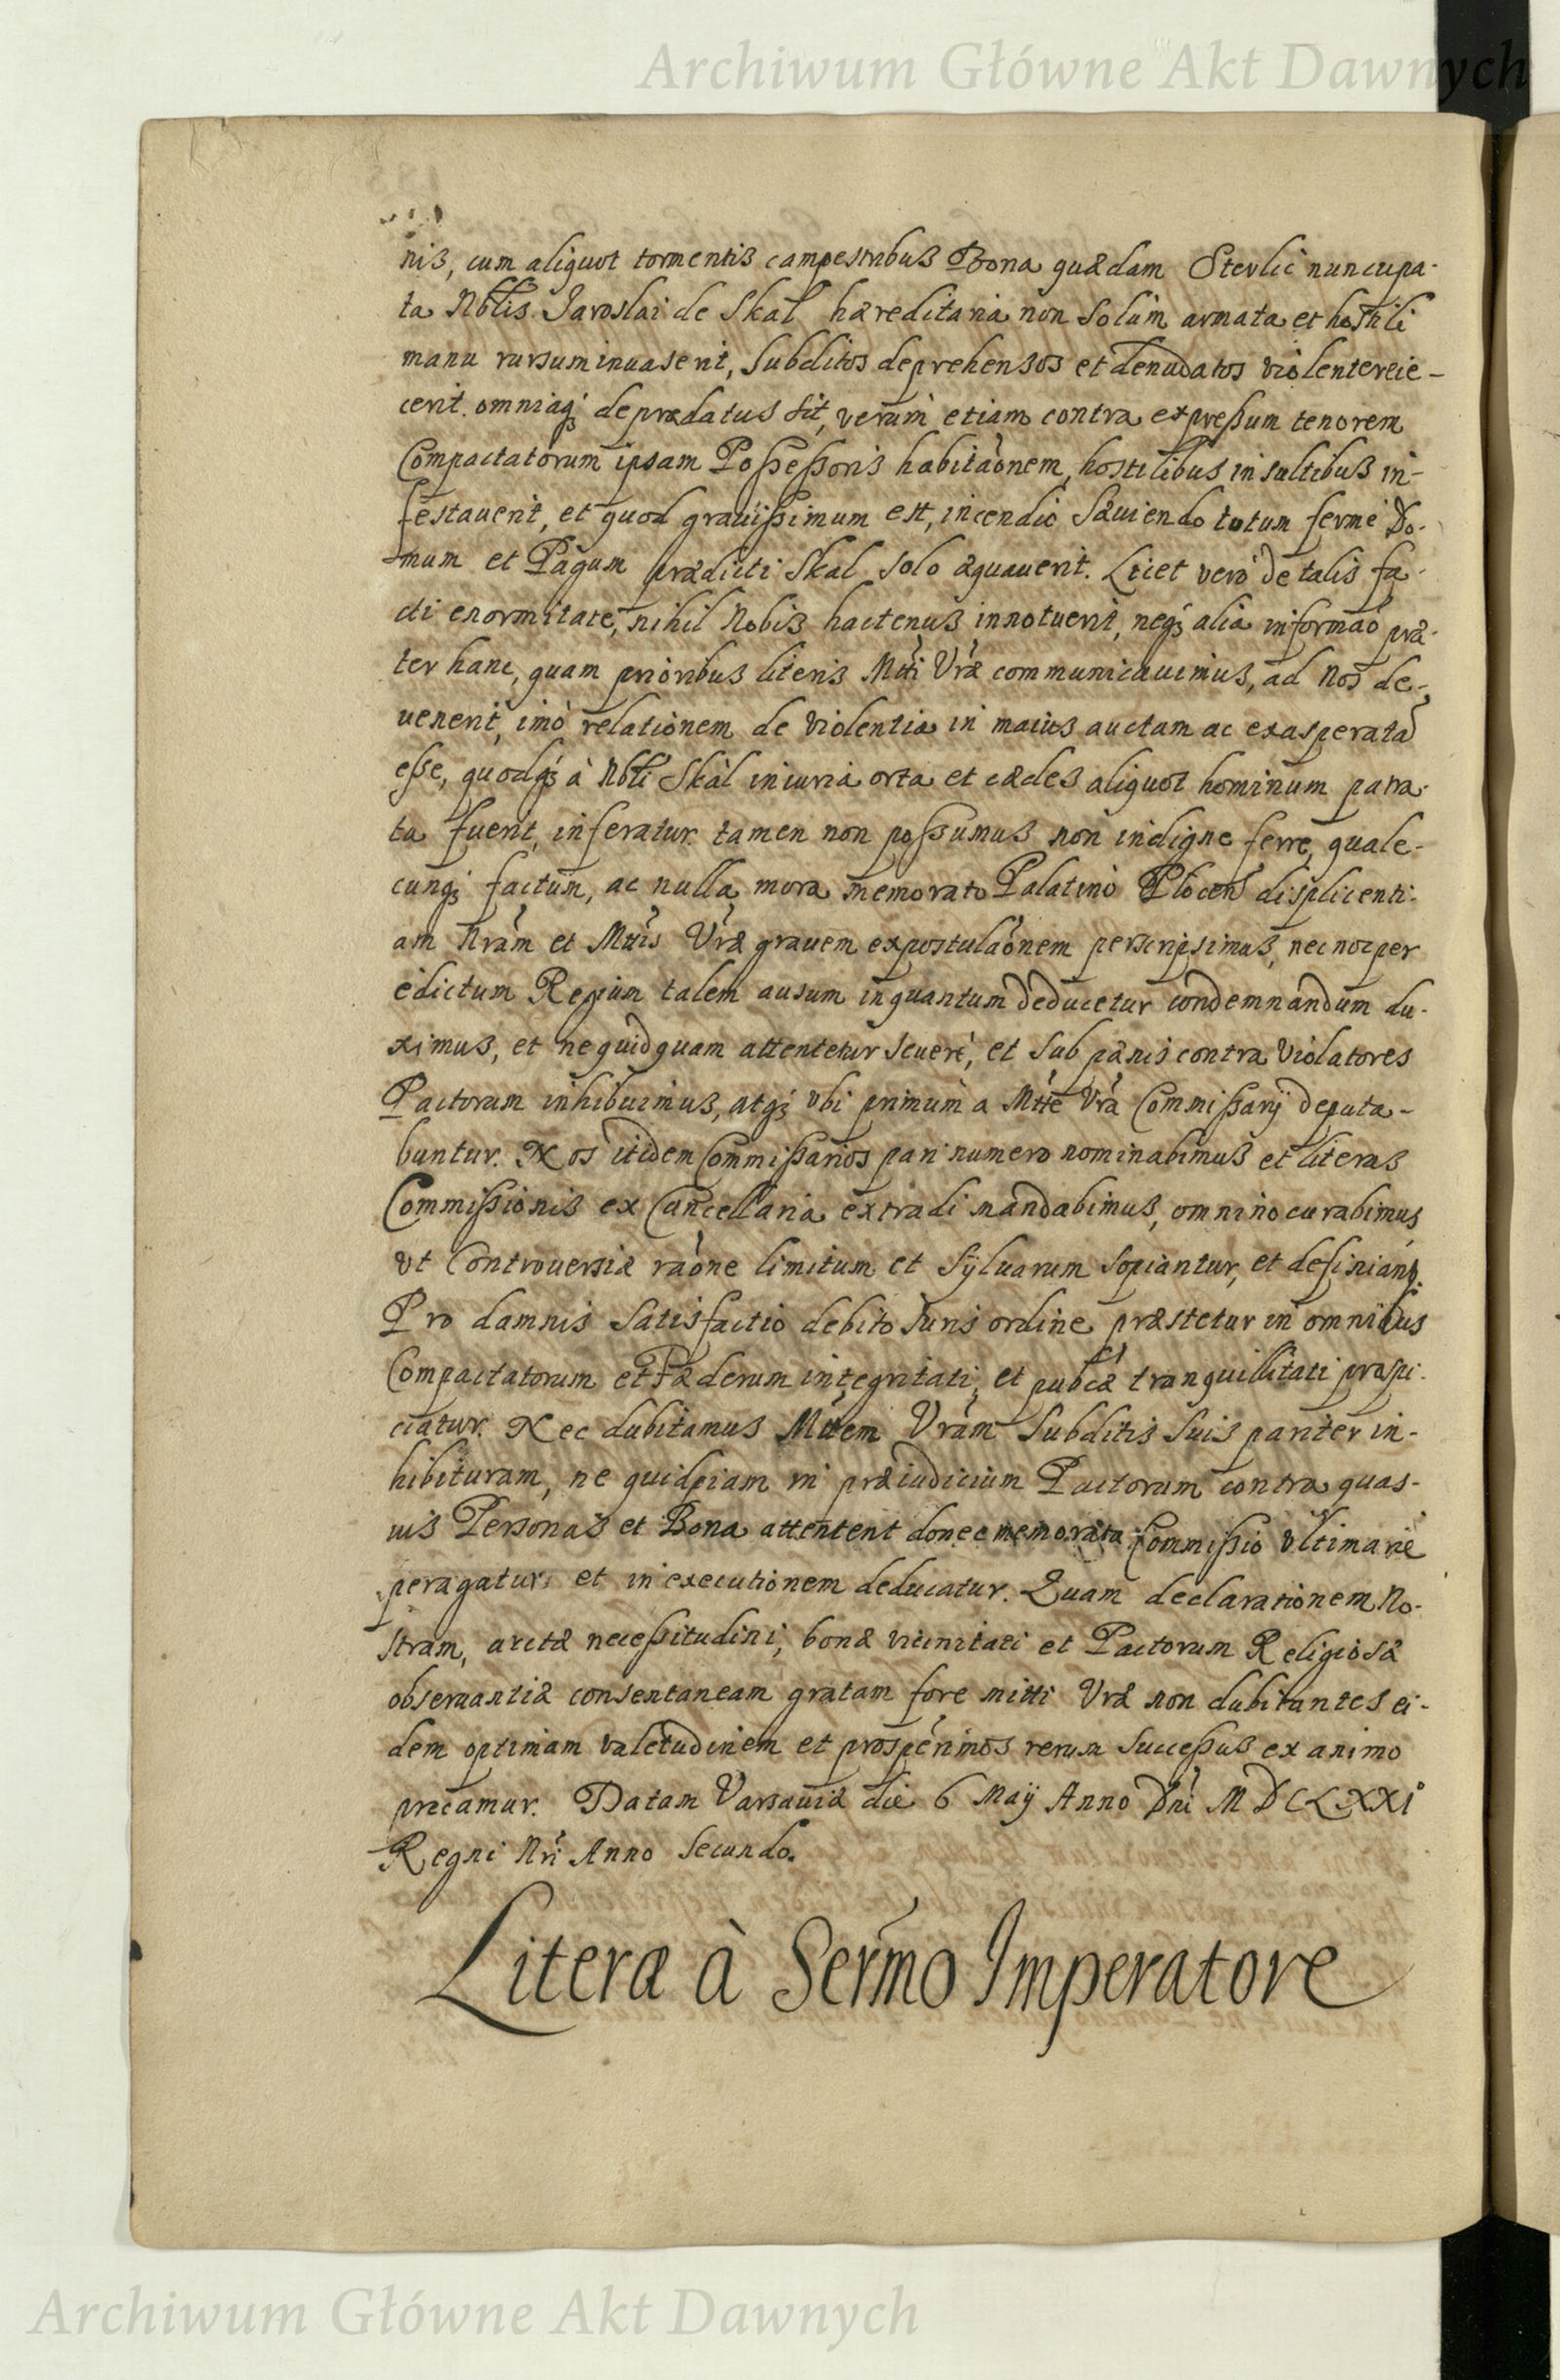 Archiwum Główne Akt Dawnych
nis, cum aliquot tormentis campestribus Bona quædam Stevlic nuncupa-
ta Nblis Jaroslai de Skal hæreditaria non solùm armata et hostili
manu rursum inuaserit, Subditos deprehensos et denudatos violenter eie-
cerit. omniaq; depredatus sit, verum etiam contra expreßum tenorem
Compactatorum ipsam Poßeßoris habitaõnem, hostilibus insultibus in-
festauerit, et quod grauißimum est, incendio Sæuiendo totum fermè Do-
mum et Pagum prædicti Skal solo æquauerit. Licet verò de talis fa-
cti enormitate, nihil Nobis hactenus innotuerit, neq; alia informaõ præ-
ter hanc, quam prioribus literis Mtti Vræ communicauimus, ad Nos de-
uenerit, imò relationem de violentia in maius auctam ac exasperatã
eße, quodq; à Nbli Skàl iniuria orta et cædes aliquot hominum patra-
ta fuerit, inferatur. tamen non poßumus non indigne ferre, quale-
cunq; factum, ac nulla mora memorato Palatino Plocen displicenti-
am Nram et Mttis Vræ grauem expostulaõnem perscripsimus, nec non per
edictum Regium talem ausum inquantum deducetur condemnandum du-
ximus, et ne quidquam attentetur seuerè, et sub pænis contra violatores
Pactorum inhibuimus, atq; vbi primùm a Mtte Vra Commißarij deputa-
buntur. Nos itidem Commißarios pari numero nominabimus et literas
Commißionis ex Cancellaria extradi mandabimus, omnino curabimus,
vt Controuersiæ raõne limitum et Syluarum sopiantur, et definiant.
Pro damnis satisfactio debito Iuris ordine præstetur in omnibus
Compactatorum et Fæderum integritati, et pubcæ tranquillitati prospi-
ciatur. Nec dubitamus Mttem Vram Subditis Suis pariter in-
hibituram, ne quidpiam in præiudicium Pactorum contra quas-
uis Personas et Bona attentent donec memorata Commißio vltimariè
peragatur, et in executionem deducatur. Quam declarationem No-
stram, arctæ neceßitudini, bonæ vicinitati et Pactorum Religiosæ
obseruantiæ consentaneam gratam fore mtti Vræ non dubitantes ei-
dem optimam valetudinem et prosperrimos rerum Succeßus ex animo
precamur. Datam Varsauiæ die 6 Maij Anno Dni MDCLXXI
Regni Nri Anno Secundo.
Literæ à Sermo Imperatore
Archiwum Główne Akt Dawnych